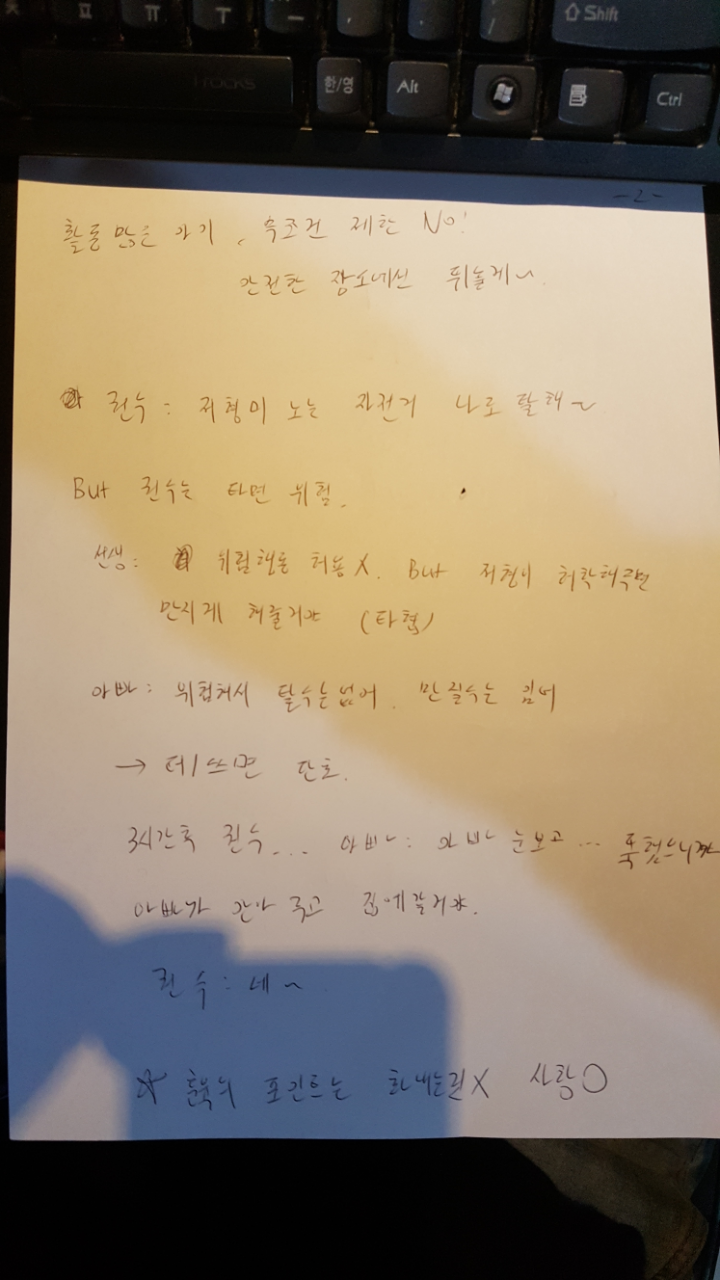 Shift
한/영
Alt
Ctrl
-2-
활동 많은 아기, 무조건 제한 No!
안전한 장소에선 뛰놀게~.
준수: 저형이 노는 자전거 나도 탈래~
But 준수는 타면 위험.
선생: 위험행동 허용X. But 저형이 허락해주면
만지게 해줄거야 (타협)
아빠: 위험해서 탈수는없어. 만질수는 있어
→ 떼쓰면 단호.
3시간후 준수... 아빠: 아빠 눈보고...
아빠가 안아 주고 집에갈거야.
준수: 네~
☆ 훈육의 포인트는 화내는것X 사랑O